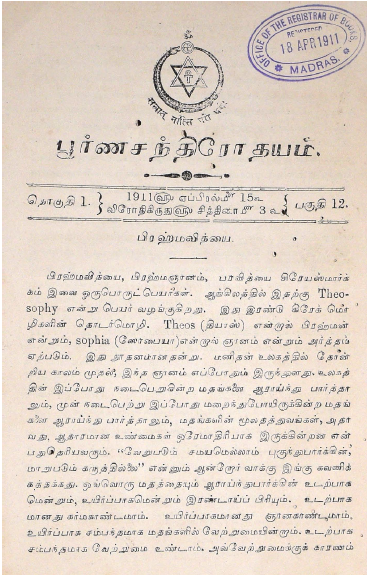 OFFICE OF THE REGISTRAR OF BOOKS,
REGISTERED
18 APR 1911
MADRAS.
सत्यात् नास्ति परो धर्मः
பூர்ணசந்திரோதயம்.
தொகுதி 1. } 1911௵ ஏப்ரல்௴ 15௳ { பகுதி 12.
விரோதிகிருது௵ சித்திரை௴ 3௳
பிரஹ்மவித்யை.
பிரஹ்மவித்யை, பிரஹ்மஞானம், பரவித்யை கிரேயஸ்மார்க்
கம் இவை ஒருபொருட்பெயர்கள். ஆங்கிலத்தில் இதற்கு Theo-
sophy என்று பெயர் வழங்குகிறது. இது இரண்டு கிரேக் மொ
ழிகளின் தொடர்மொழி. Theos (தியாஸ்) என்றால் பிரஹ்மன்
என்றும், sophia (ஸோபையா) என்றால் ஞானம் என்றும் அர்த்தம்
ஏற்படும். இது நூதனமானதன்று. மனிதன் உலகத்தில் தோன்
றிய காலம் முதலே இந்த ஞானம் எப்போதும் இருந்துளது. உலகத்
தின் இப்போது நடைபெறுகின்ற மதங்களை ஆராய்ந்து பார்த்தா
லும், முன் நடைபெற்று இப்போது மறைந்துபோயிருக்கின்ற மதங்
களை ஆராய்ந்து பார்த்தாலும், மதங்களின் மூலதத்துவங்கள், அதா
வது, ஆதாரமான உண்மைகள் ஒரேமாதிரியாக இருக்கின்றன என்
பது தெரியவரும். "வேறுபடும் சமயமெல்லாம் புகுந்துபார்க்கின்,
மாறுபடும் கருத்தில்லை" என்னும் ஆன்றோர் வாக்கு இங்கு கவனிக்
கத்தக்கது. ஒவ்வொரு மதத்தையும் ஆராய்ந்துபார்க்கின் உடற்பாக
மென்றும், உயிர்ப்பாகமென்றும் இரண்டாய்ப் பிரியும். உடற்பாக
மானது கர்மகாண்டமாம். உயிர்ப்பாகமானது ஞானகாண்டமாம்.
உயிர்ப்பாக சம்பந்தமாக மதங்களில் வேற்றுமையின்றாம். உடற்பாக
சம்பந்தமாக வேற்றுமை உண்டாம். அவ்வேற்றுமைக்குக் காரணம்